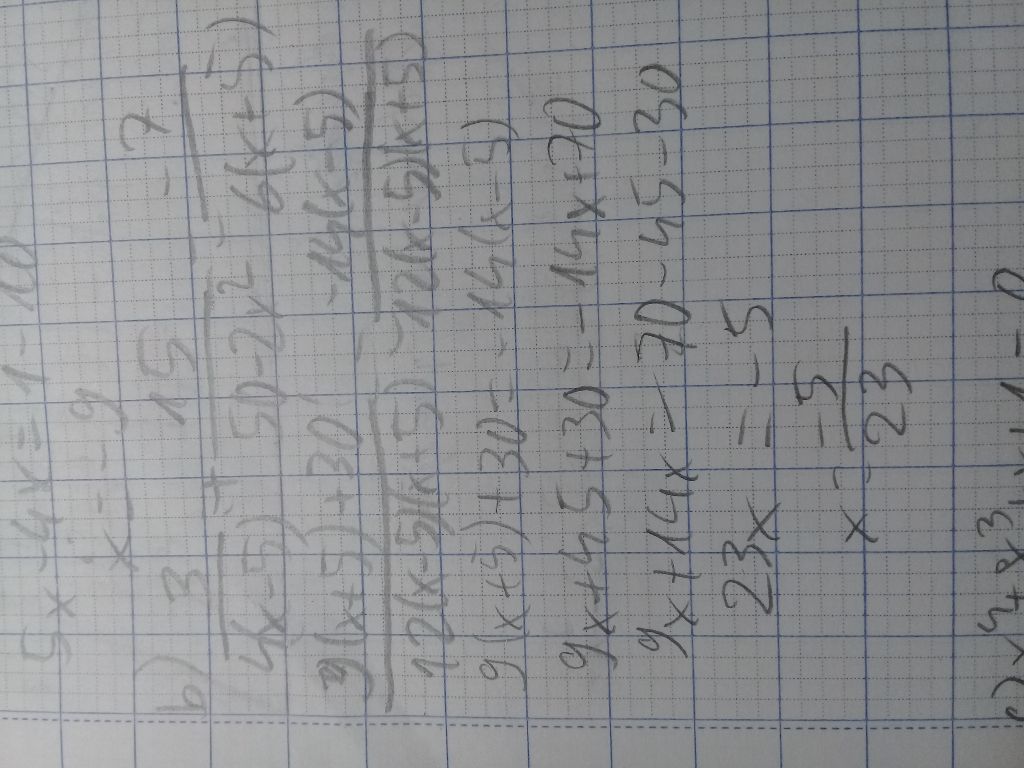 5x - 4x = 1 - 10
x = - 9
b) 3/4(x-5) + 15/50-2x² = -7/6(x+5)
9(x+5)+30/12(x-5)(x+5) = -14(x-5)/12(x-5)(x+5)
9(x+5)+30 = -14(x-5)
9x+45+30 = -14x+70
9x+14x = 70-45-30
23x = -5
x = -5/23